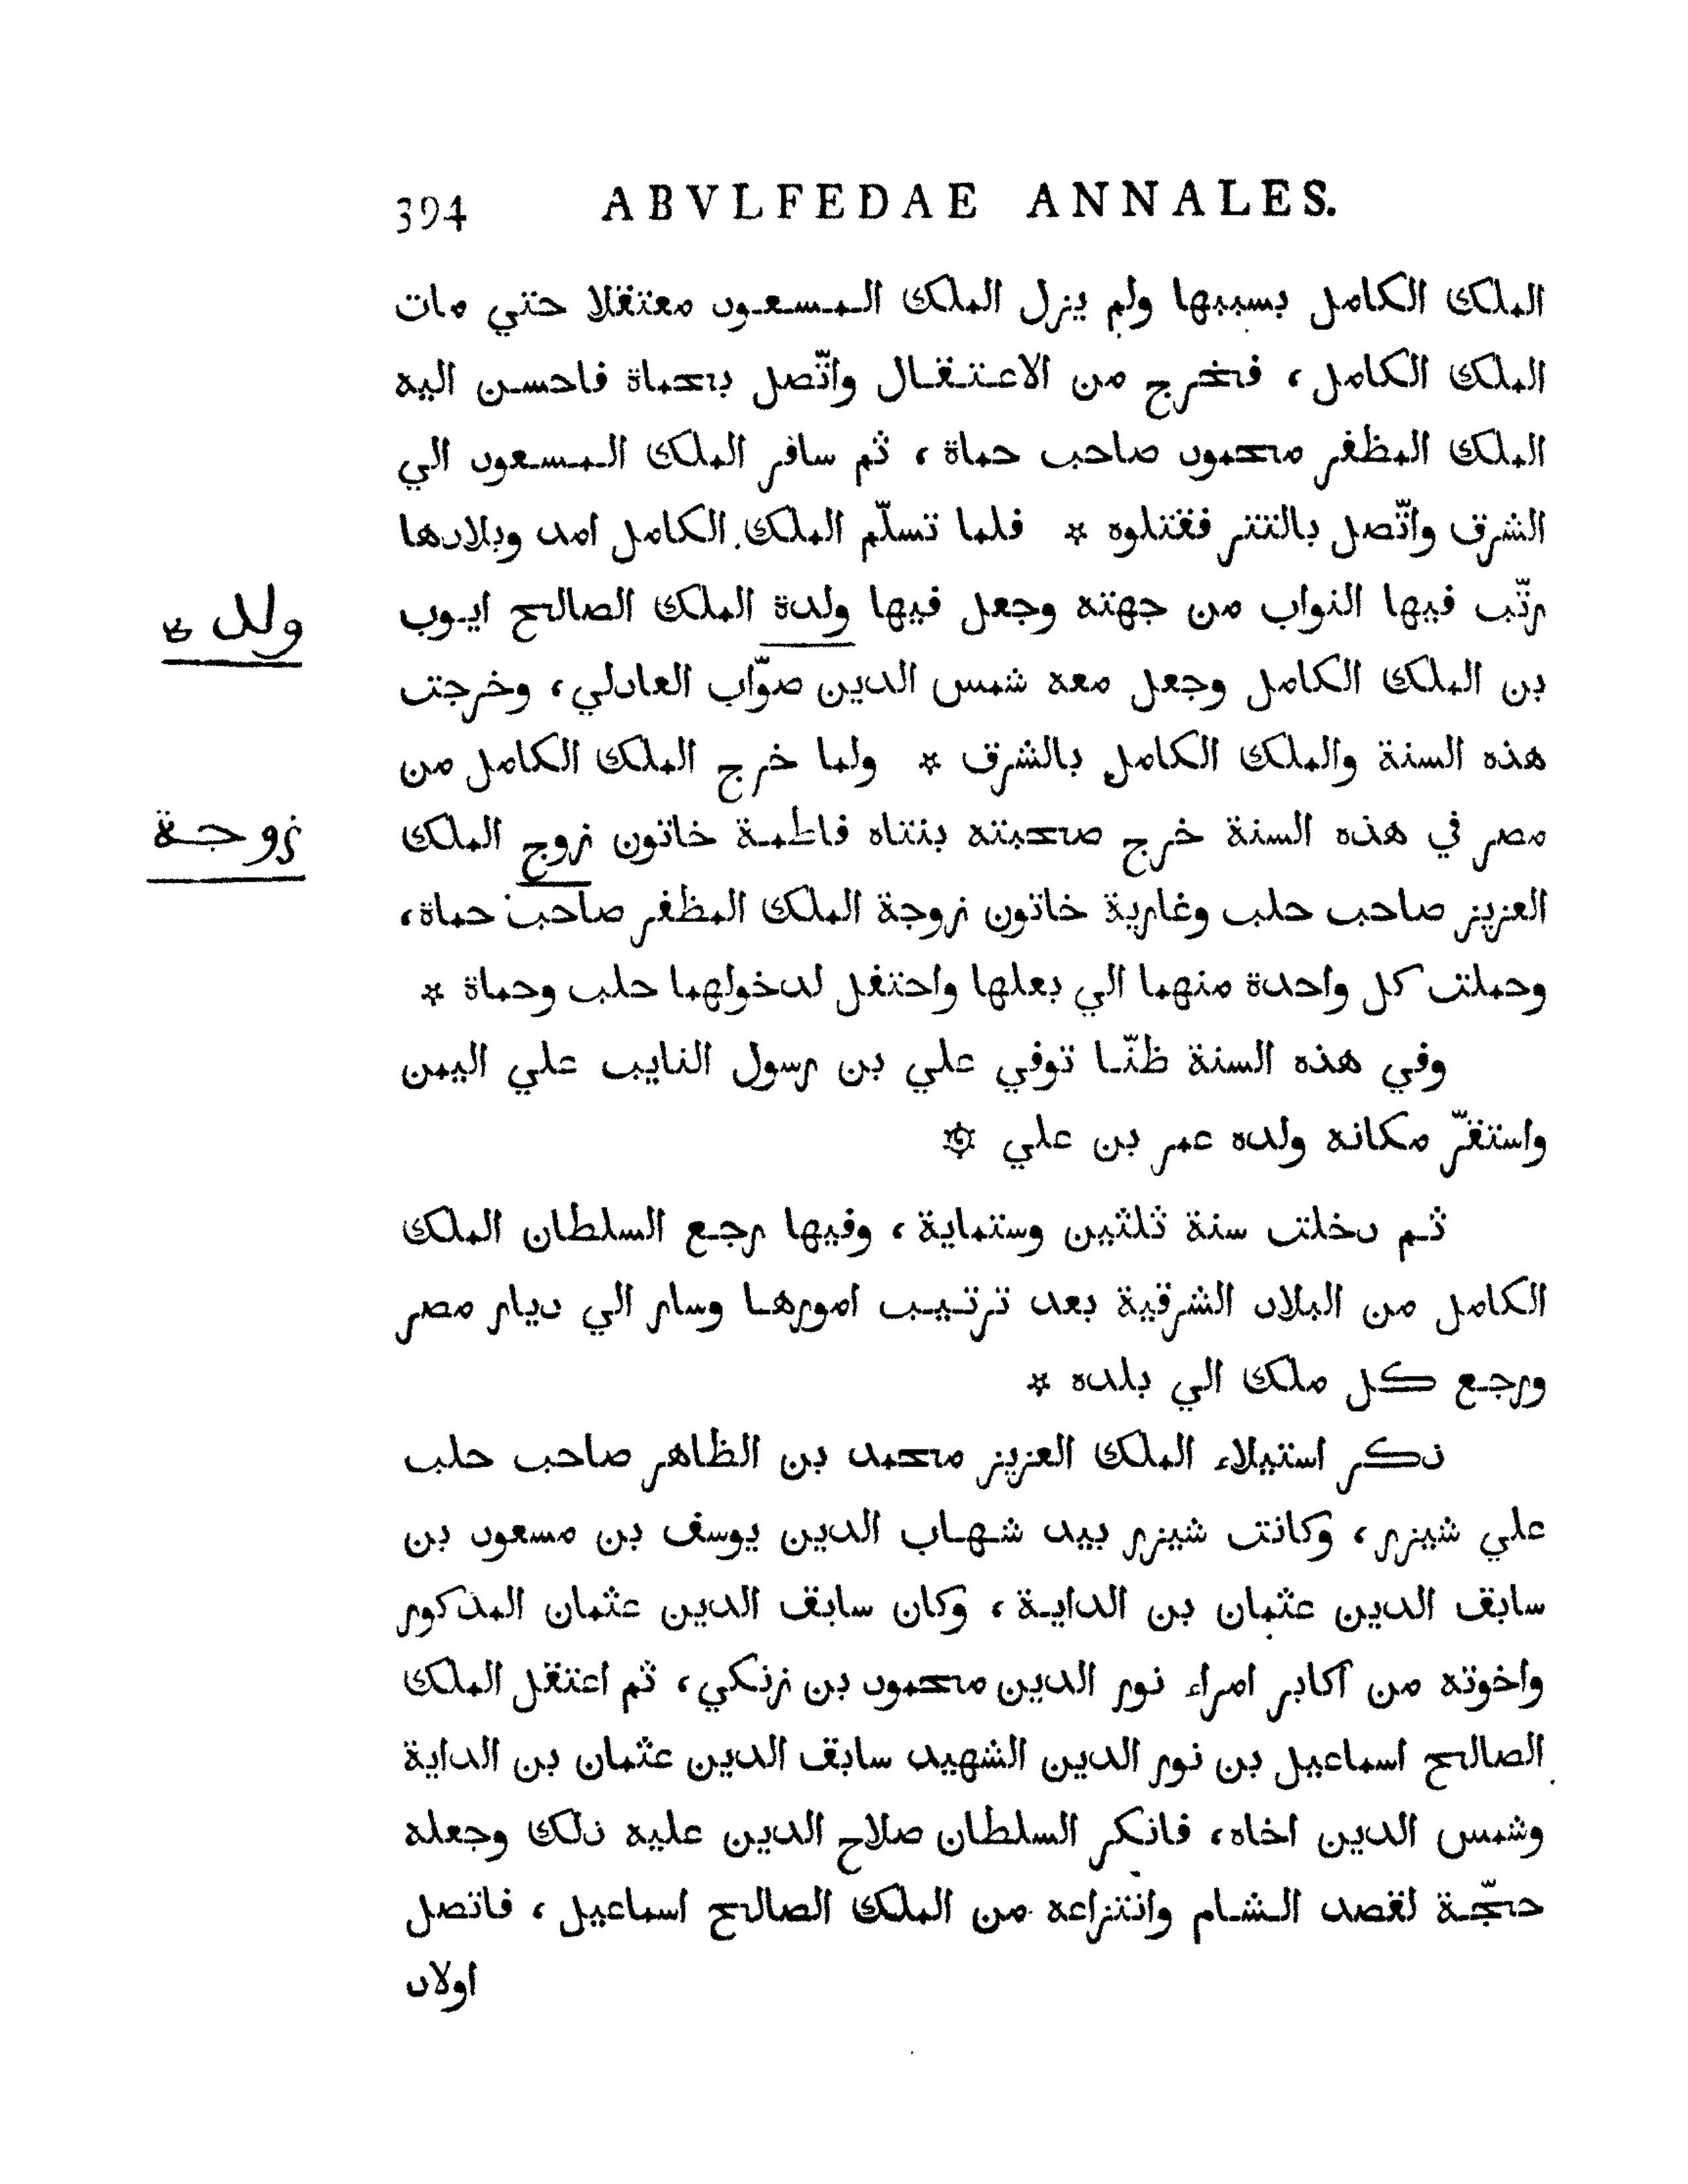 394 ABVLFEDAE ANNALES.
الملك الكامل بسببها ولم يزل الملك المسعود معتقلا حتي مات
الملك الكامل، فخرج من الاعتقال واتّصل بحماة فاحسن اليه
الملك المظفر محمود صاحب حماة، ثم سافر الملك المسعود الي
الشرق واتّصل بالتتر فقتلوه * فلما تسلّم الملك الكامل امد وبلادها
رتّب فيها النواب من جهته وجعل فيها ولدة الملك الصالح ايوب
ولده
بن الملك الكامل وجعل معه شمس الدين صوّاب العادلي، وخرجت
هذه السنة والملك الكامل بالشرق * ولما خرج الملك الكامل من
مصر في هذه السنة خرج صحبته بنتاه فاطمة خاتون زوج الملك
زوجة
العزيز صاحب حلب وغازية خاتون زوجة الملك المظفر صاحب حماة،
وحملت كل واحدة منهما الي بعلها واحتفل لدخولهما حلب وحماة *
وفي هذه السنة ظنّا توفي علي بن رسول النايب علي اليمن
واستقرّ مكانه ولده عمر بن علي ۞
ثم دخلت سنة ثلثين وستماية، وفيها رجع السلطان الملك
الكامل من البلاد الشرقية بعد ترتيب امورها وسار الي ديار مصر
ورجع كل ملك الي بلده *
ذكر استيلاء الملك العزيز محمد بن الظاهر صاحب حلب
علي شيزر، وكانت شيزر بيد شهاب الدين يوسف بن مسعود بن
سابق الدين عثمان بن الداية، وكان سابق الدين عثمان المذكور
واخوته من اكابر امراء نور الدين محمود بن زنكي، ثم اعتقل الملك
الصالح اسماعيل بن نور الدين الشهيد سابق الدين عثمان بن الداية
وشمس الدين اخاه، فانكر السلطان صلاح الدين عليه ذلك وجعله
حجّة لقصد الشام وانتزاعه من الملك الصالح اسماعيل، فاتصل
اولاد